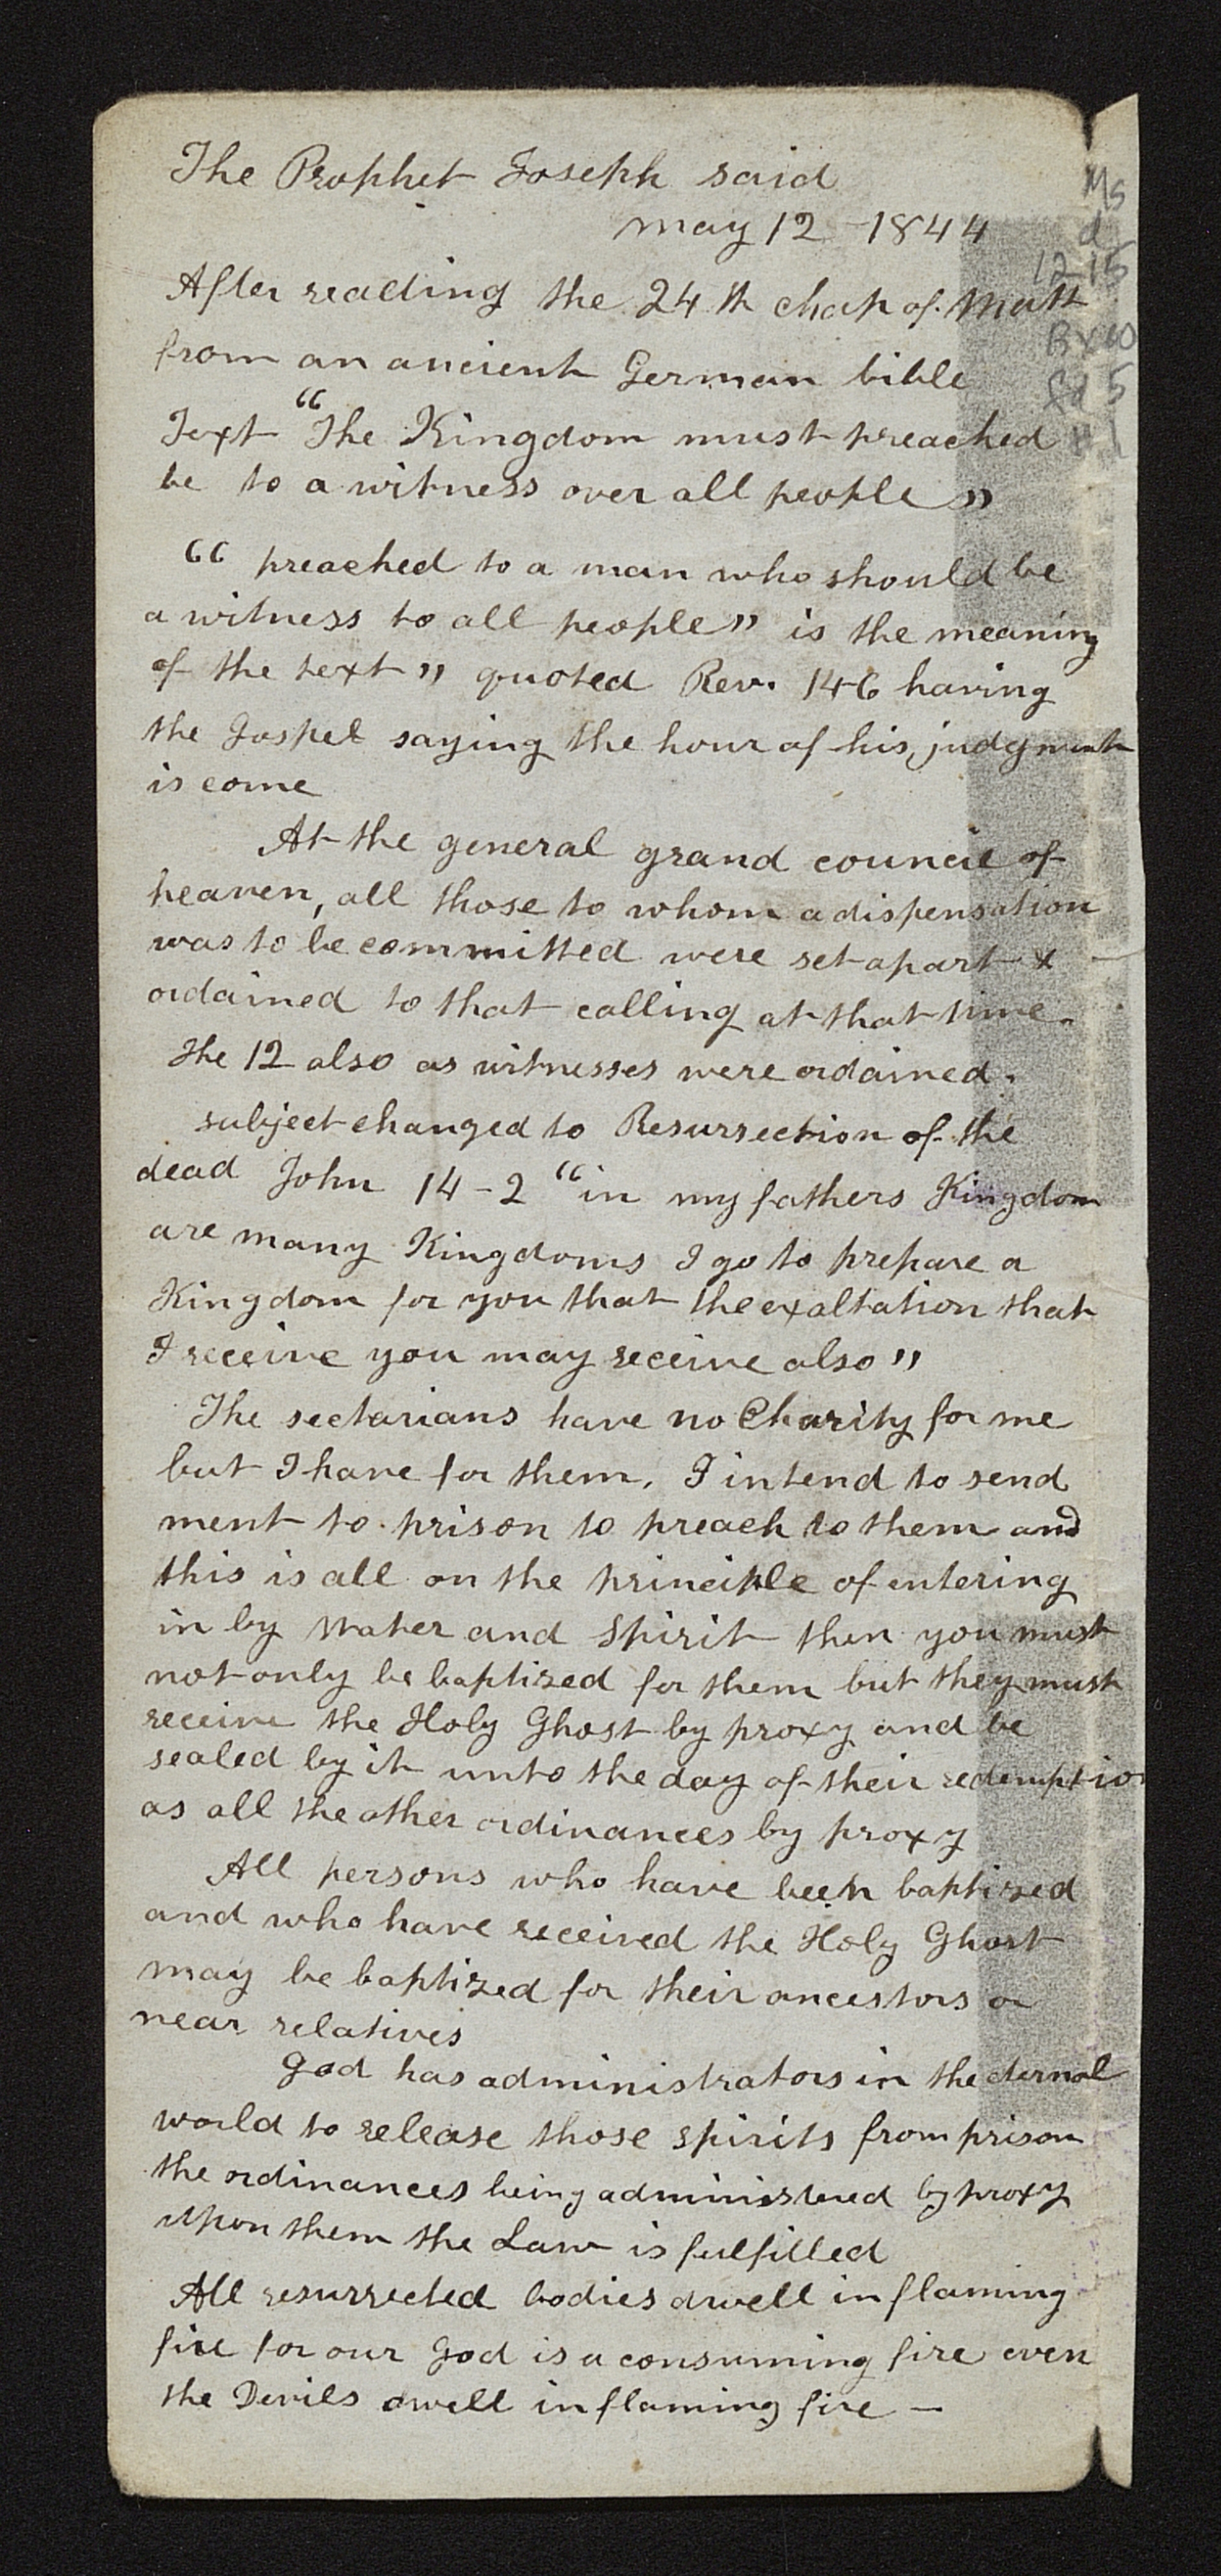 The Prophet Joseph said
may 12 - 1844
After reading the 24th chap of. Matt
from an ancient German bible
Text "The Kingdom must preached
be to a witness over all people"
"preached to a man who should be
a witness to all people" is the meaning
of the text" quoted Rev. 14-6 having
the Gospel saying the hour of his judgment
is come
At the general grand council of
heaven, all those to whom a dispensation
was to be committed were set apart &
ordained to that calling at that time.
The 12 also as witnesses were ordained.
subject changed to Resurrection of the
dead John 14-2 "in my fathers Kingdom
are many Kingdoms I go to prepare a
Kingdom for you that the exaltation that
I receive you may receive also"
The sectarians have no Charity for me
but I have for them. I intend to send
ment to prison to preach to them and
this is all on the principle of entering
in by Water and Spirit then you must
not only be baptized for them but they must
receive the Holy Ghost by proxy and be
sealed by it unto the day of their redemptio
as all the other ordinances by proxy
All persons who have been baptized
and who have received the Holy Ghost
may be baptized for their ancestors or
near relatives
God has administrators in the eternal
world to release those spirits from prison
the ordinances being administered by proxy
upon them the Law is fulfilled
All resurrected bodies dwell in flaming
fire for our God is a consuming fire even
the Devils dwell in flaming fire —
Ms
d
1215
Bx 10
fd 5